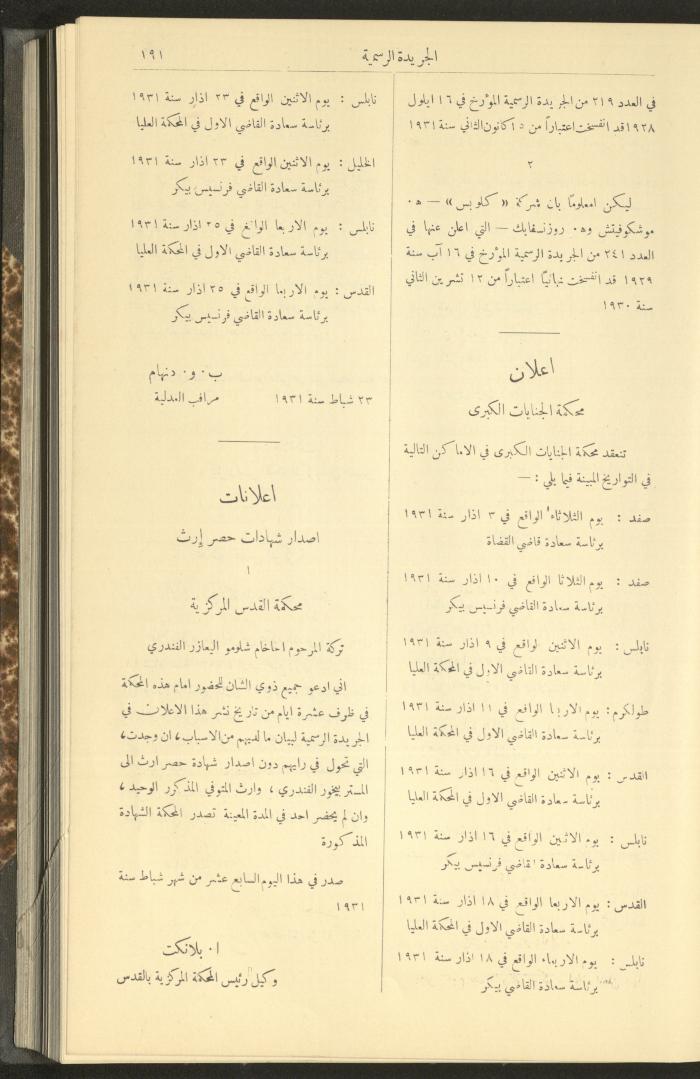 الجريدة الرسمية
١٩١
في العدد ٢١٩ من الجريدة الرسمية المؤرخ في ١٦ ايلول
١٩٢٨ قد انفسخت اعتباراً من ١٥ كانون الثاني سنة ١٩٣١
٢
ليكن معلومًا بان شركة « كلوبس » — ه٠
موشكوفيتش وه٠ روزنسفايك — التي اعلن عنها في
العدد ٢٤١ من الجريدة الرسمية المؤرخ في ١٦ آب سنة
١٩٢٩ قد انفسخت نهائيًا اعتباراً من ١٢ تشرين الثاني
سنة ١٩٣٠
اعلان
محكمة الجنايات الكبرى
تنعقد محكمة الجنايات الكبرى في الاماكن التالية
في التواريخ المبينة فيما يلي : —
صفد : يوم الثلاثاء الواقع في ٣ اذار سنة ١٩٣١
برئاسة سعادة قاضي القضاة
صفد : يوم الثلاثا الواقع في ١٠ اذار سنة ١٩٣١
برئاسة سعادة القاضي فرنسيس بيكر
نابلس : يوم الاثنين الواقع في ٩ اذار سنة ١٩٣١
برئاسة سعادة القاضي الاول في المحكمة العليا
طولكرم : يوم الاربعا الواقع في ١١ اذار سنة ١٩٣١
برئاسة سعادة القاضي الاول في المحكمة العليا
القدس : يوم الاثنين الواقع في ١٦ اذار سنة ١٩٣١
برئاسة سعادة القاضي الاول في المحكمة العليا
نابلس : يوم الاثنين الواقع في ١٦ اذار سنة ١٩٣١
برئاسة سعادة القاضي فرنسيس بيكر
القدس : يوم الاربعا الواقع في ١٨ اذار سنة ١٩٣١
برئاسة سعادة القاضي الاول في المحكمة العليا
نابلس : يوم الاربعاء الواقع في ١٨ اذار سنة ١٩٣١
برئاسة سعادة القاضي بيكر
نابلس : يوم الاثنين الواقع في ٢٣ اذار سنة ١٩٣١
برئاسة سعادة القاضي الاول في المحكمة العليا
الخليل : يوم الاثنين الواقع في ٢٣ اذار سنة ١٩٣١
برئاسة سعادة القاضي فرنسيس بيكر
نابلس : يوم الاربعا الواقع في ٢٥ اذار سنة ١٩٣١
برئاسة سعادة القاضي الاول في المحكمة العليا
القدس : يوم الاربعا الواقع في ٢٥ اذار سنة ١٩٣١
برئاسة سعادة القاضي فرنسيس بيكر
ب٠ و٠ دنهام
٢٣ شباط سنة ١٩٣١ مراقب العدلية
اعلانات
اصدار شهادات حصر إرث
١
محكمة القدس المركزية
تركة المرحوم احاخام شلومو اليعازر الفندري
اني ادعو جميع ذوي الشان للحضور امام هذه المحكمة
في ظرف عشرة ايام من تاريخ نشر هذا الاعلان في
الجريدة الرسمية لبيان ما لديهم من الاسباب، ان وجدت،
التي تحول في رايهم دون اصدار شهادة حصر ارث الى
المستر بيخور الفندري ، وارث المتوفي المذكور الوحيد ،
وان لم يحضر احد في المدة المعينة تصدر المحكمة الشهادة
المذكورة
صدر في هذا اليوم السابع عشر من شهر شباط سنة
١٩٣١
ا٠ بلانكت
وكيل رئيس المحكمة المركزية بالقدس